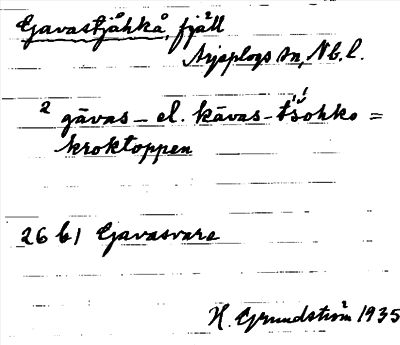 Gavastjåhkå, fjäll
Arjeplogs sn, Nb. l.
2 gāvas- el. kāvas-tšohko =
kroktoppen
26 b1 Gavasvare
H. Grundström 1935